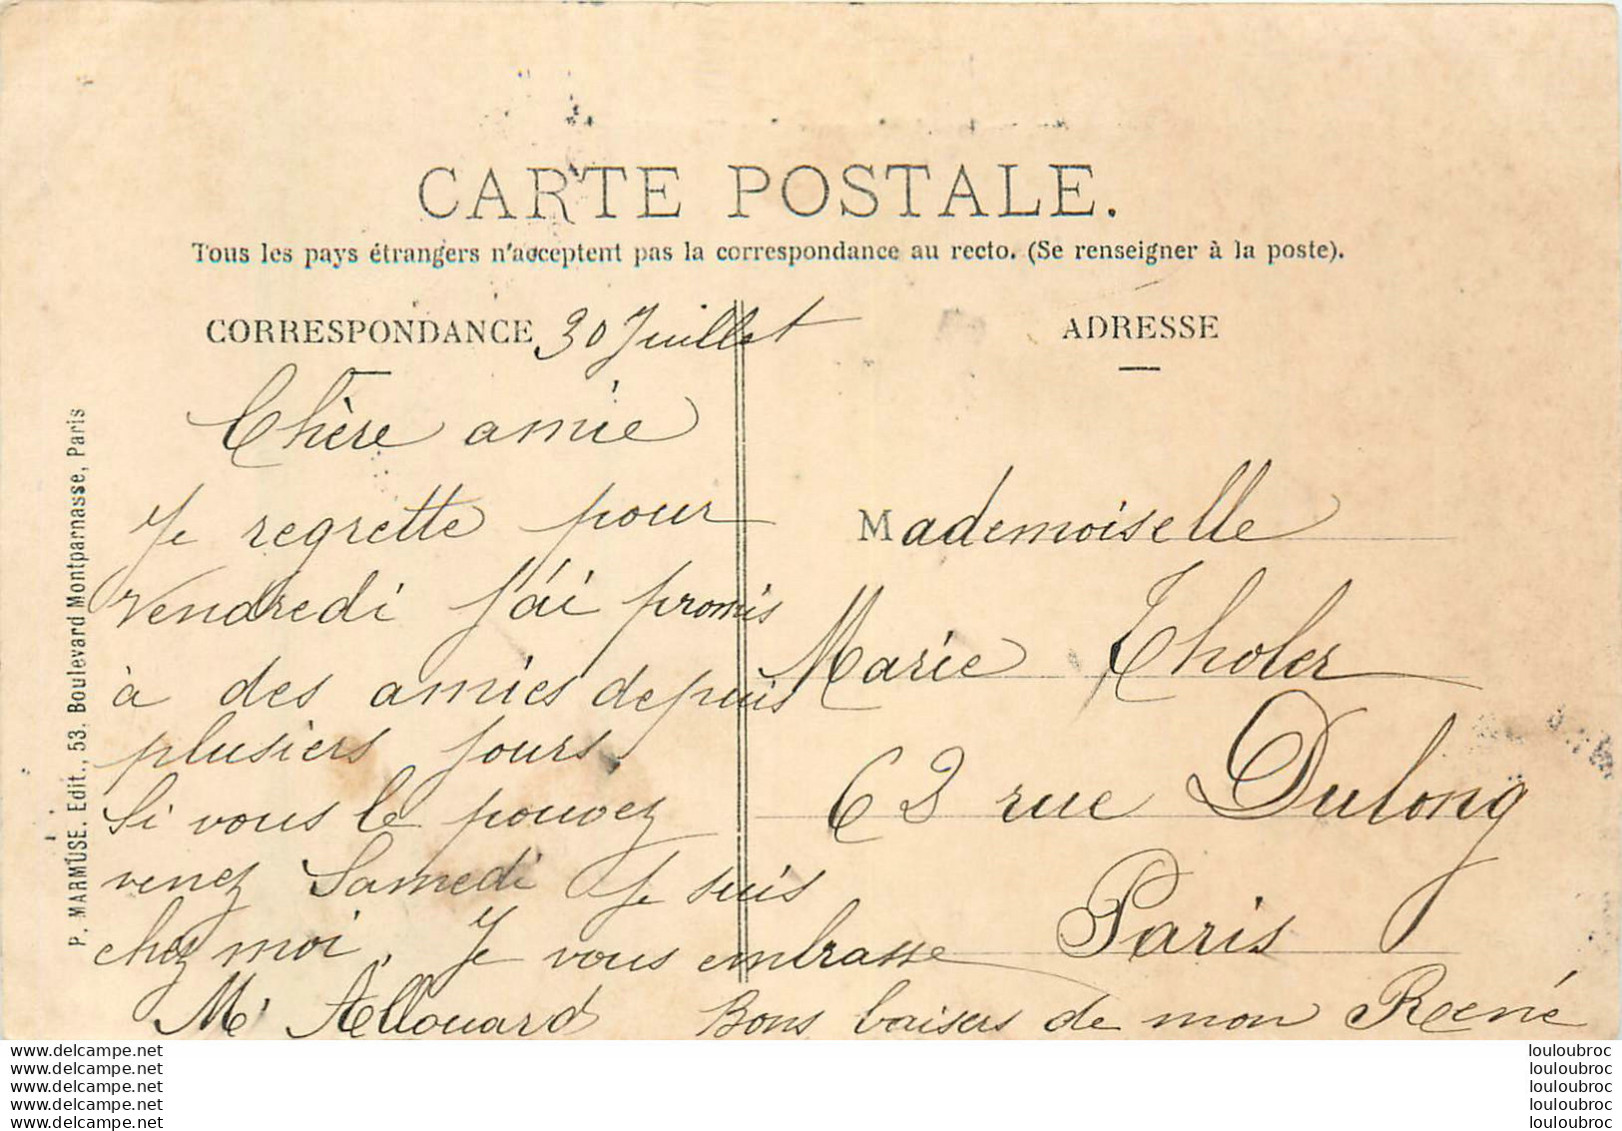 CARTE POSTALE.
Tous les pays étrangers n'acceptent pas la correspondance au recto. (Se renseigner à la poste).
CORRESPONDANCE
30 Juillet
Chère amie
Je regrette pour
Vendredi j'ai promis
à des amies depuis
plusiers jours.
Si vous le pouvez
venez Samedi je suis
chez moi. Je vous embrasse
M. Allouard
Bons baisers de mon René
ADRESSE
Mademoiselle
Marie Tholer
62 rue Dulong
Paris
P. MARMUSE. Edit., 53, Boulevard Montparnasse, Paris
www.delcampe.net
www.delcampe.net
www.delcampe.net
www.delcampe.net
www.delcampe.net
louloubroc
louloubroc
louloubroc
louloubroc
louloubroc